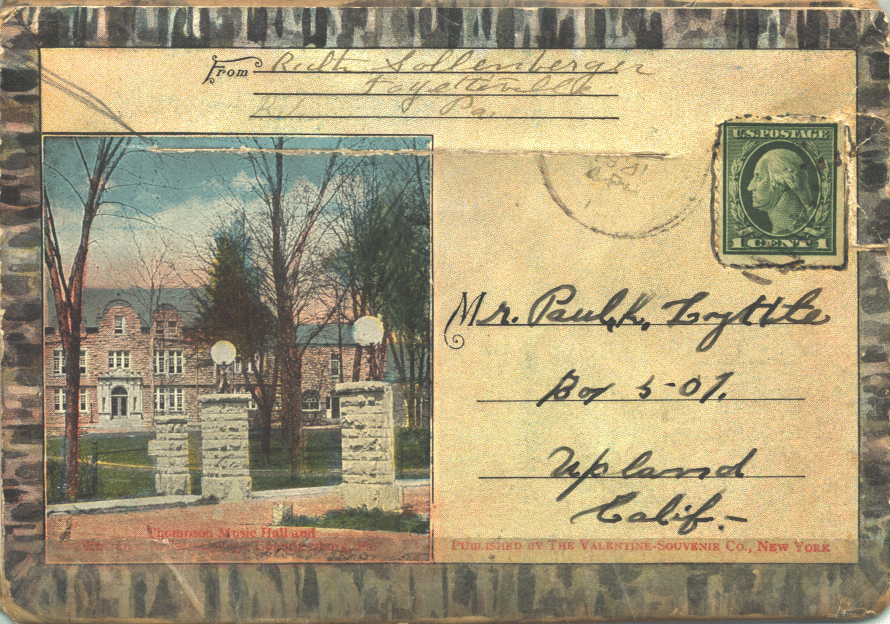 From Ruth Sollenberger
Fayetteville
Pa.
U.S. POSTAGE
1 CENT 1
Mr. Paul, K. Lyttle
Box 5-07.
Upland
Calif.-
Thompson Music Hall and
PUBLISHED BY THE VALENTINE-SOUVENIR CO., NEW YORK